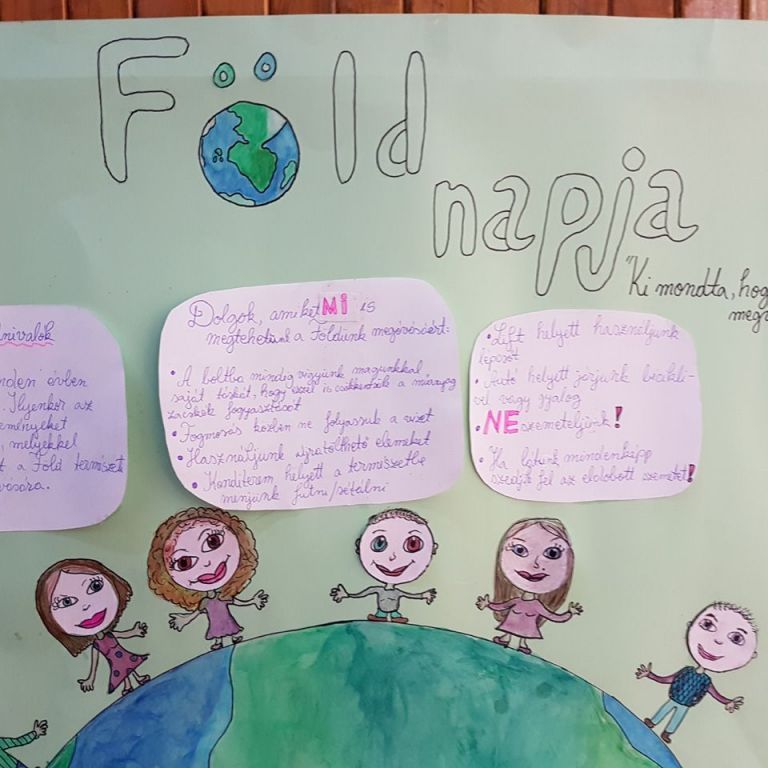 Föld
napja
"Ki mondta, hog
megv
nivalók
nden évben
. Ilyenkor az
eményeket
, melyekkel
t a Föld természet
vására.
Dolgok, amiket MI is
megtehetünk a Földünk megóvásáért:
• A boltba mindig vigyünk magunkkal
saját táskát, hogy ezzel is csökkentsük a műanyag
zacskók fogyasztását
• Fogmosás közben ne folyassuk a vizet
• Használjunk újratölthető elemeket
• Konditerem helyett a természetbe
menjünk futni/sétálni
• Lift helyett használjunk
lépcsőt
• Autó helyett járjunk bicikli-
vel vagy gyalog
• NE szemeteljünk!
• Ha látunk mindenképp
szedjük fel az eldobott szemetet!